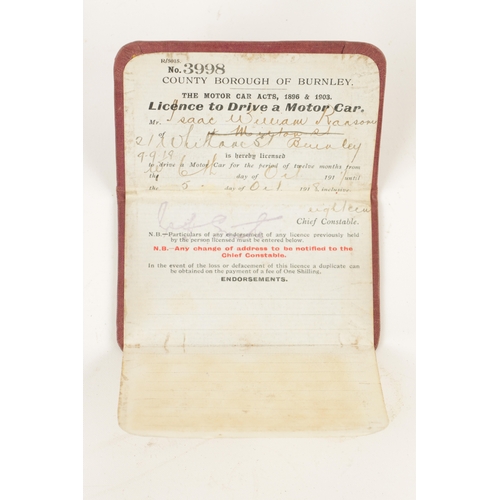 No. 3998
COUNTY BOROUGH OF BURNLEY.
THE MOTOR CAR ACTS, 1896 & 1903.
Licence to Drive a Motor Car.
Mr. Isaac William
of
St Burnley
is hereby licensed
to drive a Motor Car for the period of twelve months from
the 6th day of Oct 191 until
the 5 day of Oct 1918 inclusive.
eighteen
Chief Constable.
N.B.—Particulars of any endorsement of any licence previously held
by the person licensed must be entered below.
N.B.—Any change of address to be notified to the
Chief Constable.
In the event of the loss or defacement of this licence a duplicate can
be obtained on the payment of a fee of One Shilling.
ENDORSEMENTS.